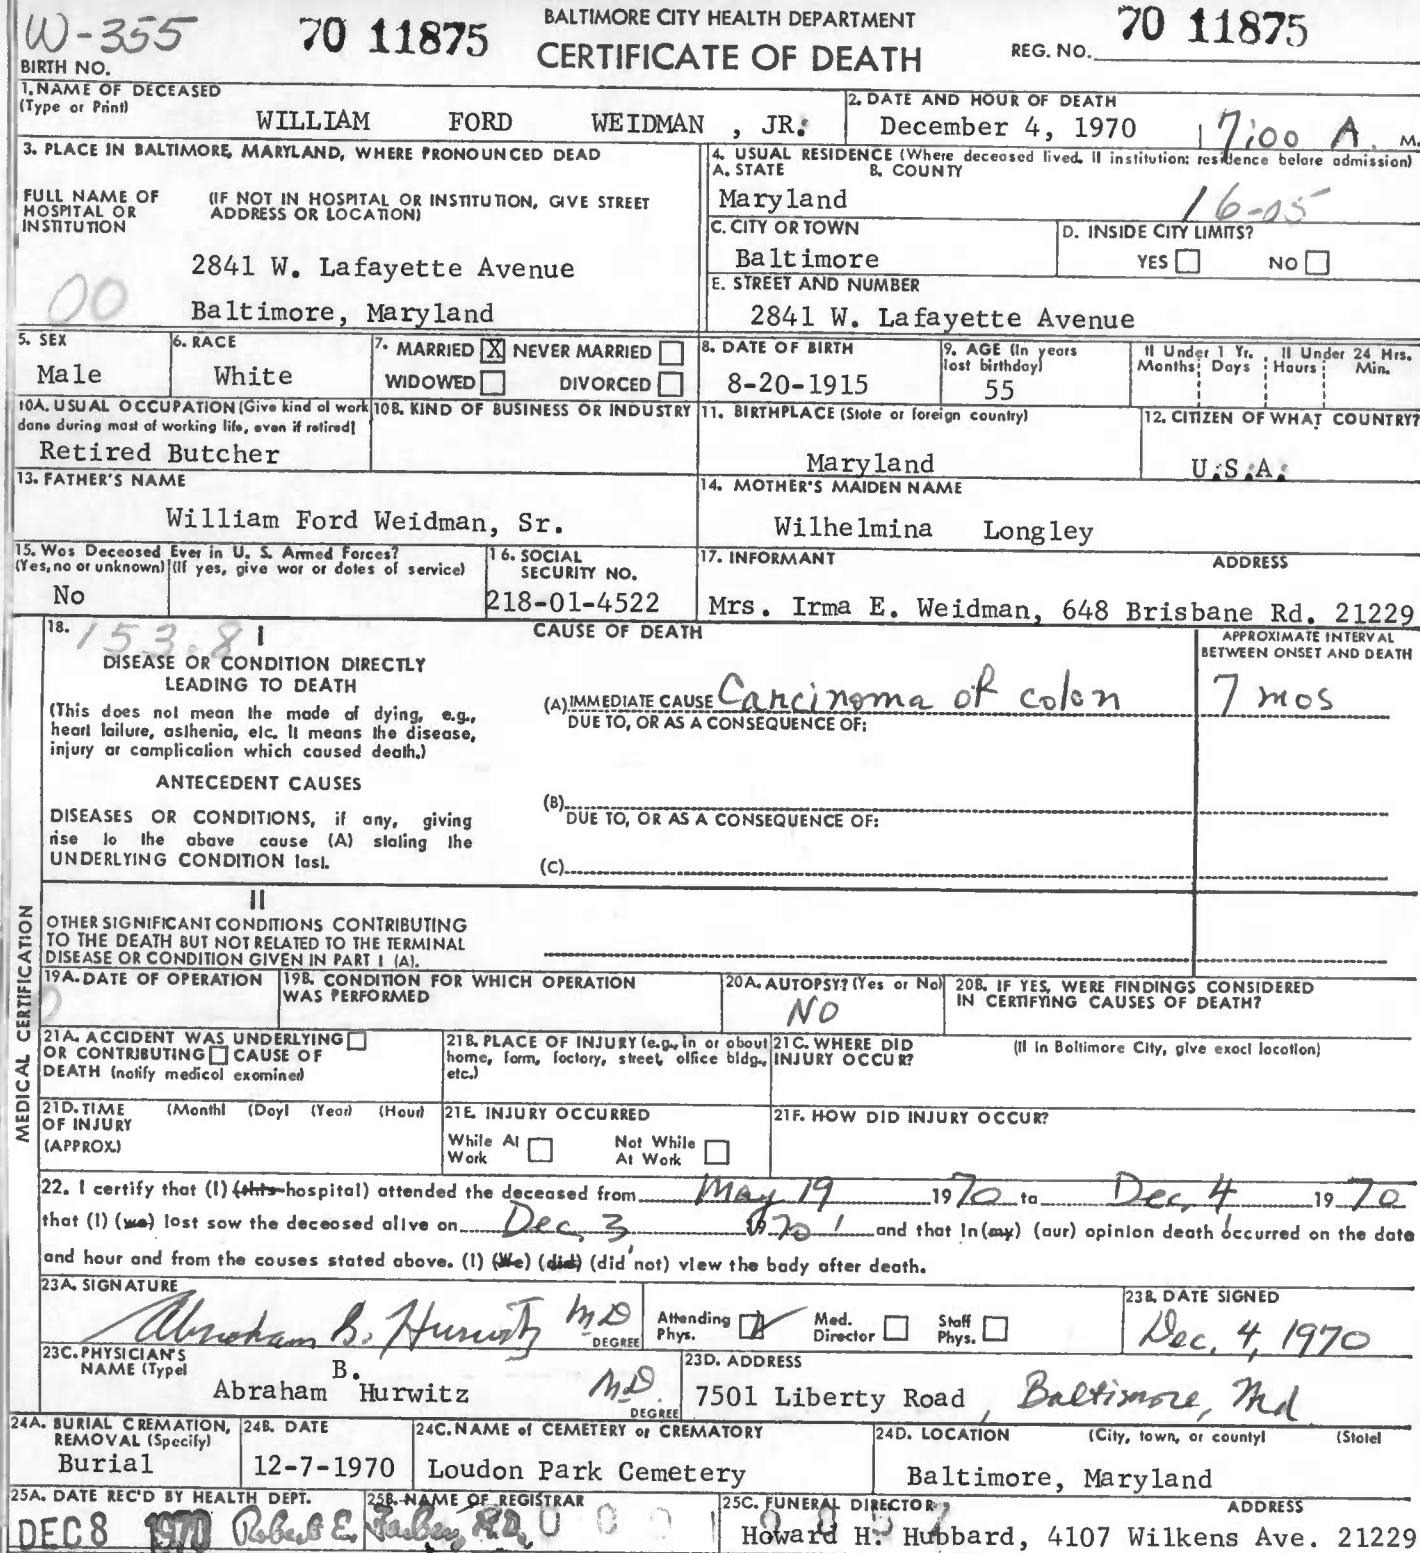 W-355
70 11875
BALTIMORE CITY HEALTH DEPARTMENT
CERTIFICATE OF DEATH
REG. NO. 70 11875
BIRTH NO.
1. NAME OF DECEASED
(Type or Print)
WILLIAM FORD WEIDMAN , JR.
2. DATE AND HOUR OF DEATH
December 4, 1970 7:00 A. M.
3. PLACE IN BALTIMORE, MARYLAND, WHERE PRONOUNCED DEAD
FULL NAME OF HOSPITAL OR INSTITUTION
(IF NOT IN HOSPITAL OR INSTITUTION, GIVE STREET ADDRESS OR LOCATION)
2841 W. Lafayette Avenue
00
Baltimore, Maryland
4. USUAL RESIDENCE (Where deceased lived. If institution: residence before admission)
A. STATE B. COUNTY
Maryland
16-05
C. CITY OR TOWN
Baltimore
D. INSIDE CITY LIMITS?
YES NO
E. STREET AND NUMBER
2841 W. Lafayette Avenue
5. SEX
Male
6. RACE
White
7. MARRIED X NEVER MARRIED
WIDOWED DIVORCED
8. DATE OF BIRTH
8-20-1915
9. AGE (In years last birthday)
55
If Under 1 Yr. If Under 24 Hrs.
Months Days Hours Min.
10A. USUAL OCCUPATION (Give kind of work done during most of working life, even if retired)
Retired Butcher
10B. KIND OF BUSINESS OR INDUSTRY
11. BIRTHPLACE (State or foreign country)
Maryland
12. CITIZEN OF WHAT COUNTRY?
U.S.A.
13. FATHER'S NAME
William Ford Weidman, Sr.
14. MOTHER'S MAIDEN NAME
Wilhelmina Longley
15. Was Deceased Ever in U. S. Armed Forces?
(Yes, no or unknown) (If yes, give war or dates of service)
No
16. SOCIAL SECURITY NO.
218-01-4522
17. INFORMANT ADDRESS
Mrs. Irma E. Weidman, 648 Brisbane Rd. 21229
18. 153.8
I
DISEASE OR CONDITION DIRECTLY
LEADING TO DEATH
(This does not mean the mode of dying, e.g., heart failure, asthenia, etc. It means the disease, injury or complication which caused death.)
ANTECEDENT CAUSES
DISEASES OR CONDITIONS, if any, giving rise to the above cause (A) stating the UNDERLYING CONDITION last.
CAUSE OF DEATH
APPROXIMATE INTERVAL BETWEEN ONSET AND DEATH
(A) IMMEDIATE CAUSE Carcinoma of colon 7 mos
DUE TO, OR AS A CONSEQUENCE OF:
(B)
DUE TO, OR AS A CONSEQUENCE OF:
(C)
MEDICAL CERTIFICATION
II
OTHER SIGNIFICANT CONDITIONS CONTRIBUTING
TO THE DEATH BUT NOT RELATED TO THE TERMINAL
DISEASE OR CONDITION GIVEN IN PART I (A).
19A. DATE OF OPERATION
19B. CONDITION FOR WHICH OPERATION WAS PERFORMED
20A. AUTOPSY? (Yes or No)
NO
20B. IF YES, WERE FINDINGS CONSIDERED IN CERTIFYING CAUSES OF DEATH?
21A. ACCIDENT WAS UNDERLYING
OR CONTRIBUTING CAUSE OF
DEATH (notify medical examiner)
21B. PLACE OF INJURY (e.g., in or about home, farm, factory, street, office bldg., etc.)
21C. WHERE DID INJURY OCCUR?
(If in Baltimore City, give exact location)
21D. TIME OF INJURY (APPROX.)
(Month) (Day) (Year) (Hour)
21E. INJURY OCCURRED
While At Work Not While At Work
21F. HOW DID INJURY OCCUR?
22. I certify that (I) (this hospital) attended the deceased from May 19 1970 to Dec. 4 1970
that (I) (we) last saw the deceased alive on Dec. 3 1970 and that in (my) (our) opinion death occurred on the date
and hour and from the causes stated above. (I) (We) (did) (did not) view the body after death.
23A. SIGNATURE
Abraham B. Hurwitz MD
DEGREE
Attending Phys. Med. Director Staff Phys.
23B. DATE SIGNED
Dec. 4, 1970
23C. PHYSICIAN'S NAME (Type)
Abraham B. Hurwitz M.D.
DEGREE
23D. ADDRESS
7501 Liberty Road, Baltimore, Md
24A. BURIAL CREMATION, REMOVAL (Specify)
Burial
24B. DATE
12-7-1970
24C. NAME of CEMETERY or CREMATORY
Loudon Park Cemetery
24D. LOCATION (City, town, or county) (State)
Baltimore, Maryland
25A. DATE REC'D BY HEALTH DEPT.
DEC 8 1970
25B. NAME OF REGISTRAR
Robert E. Farber, M.D.
25C. FUNERAL DIRECTOR ADDRESS
Howard H. Hubbard, 4107 Wilkens Ave. 21229